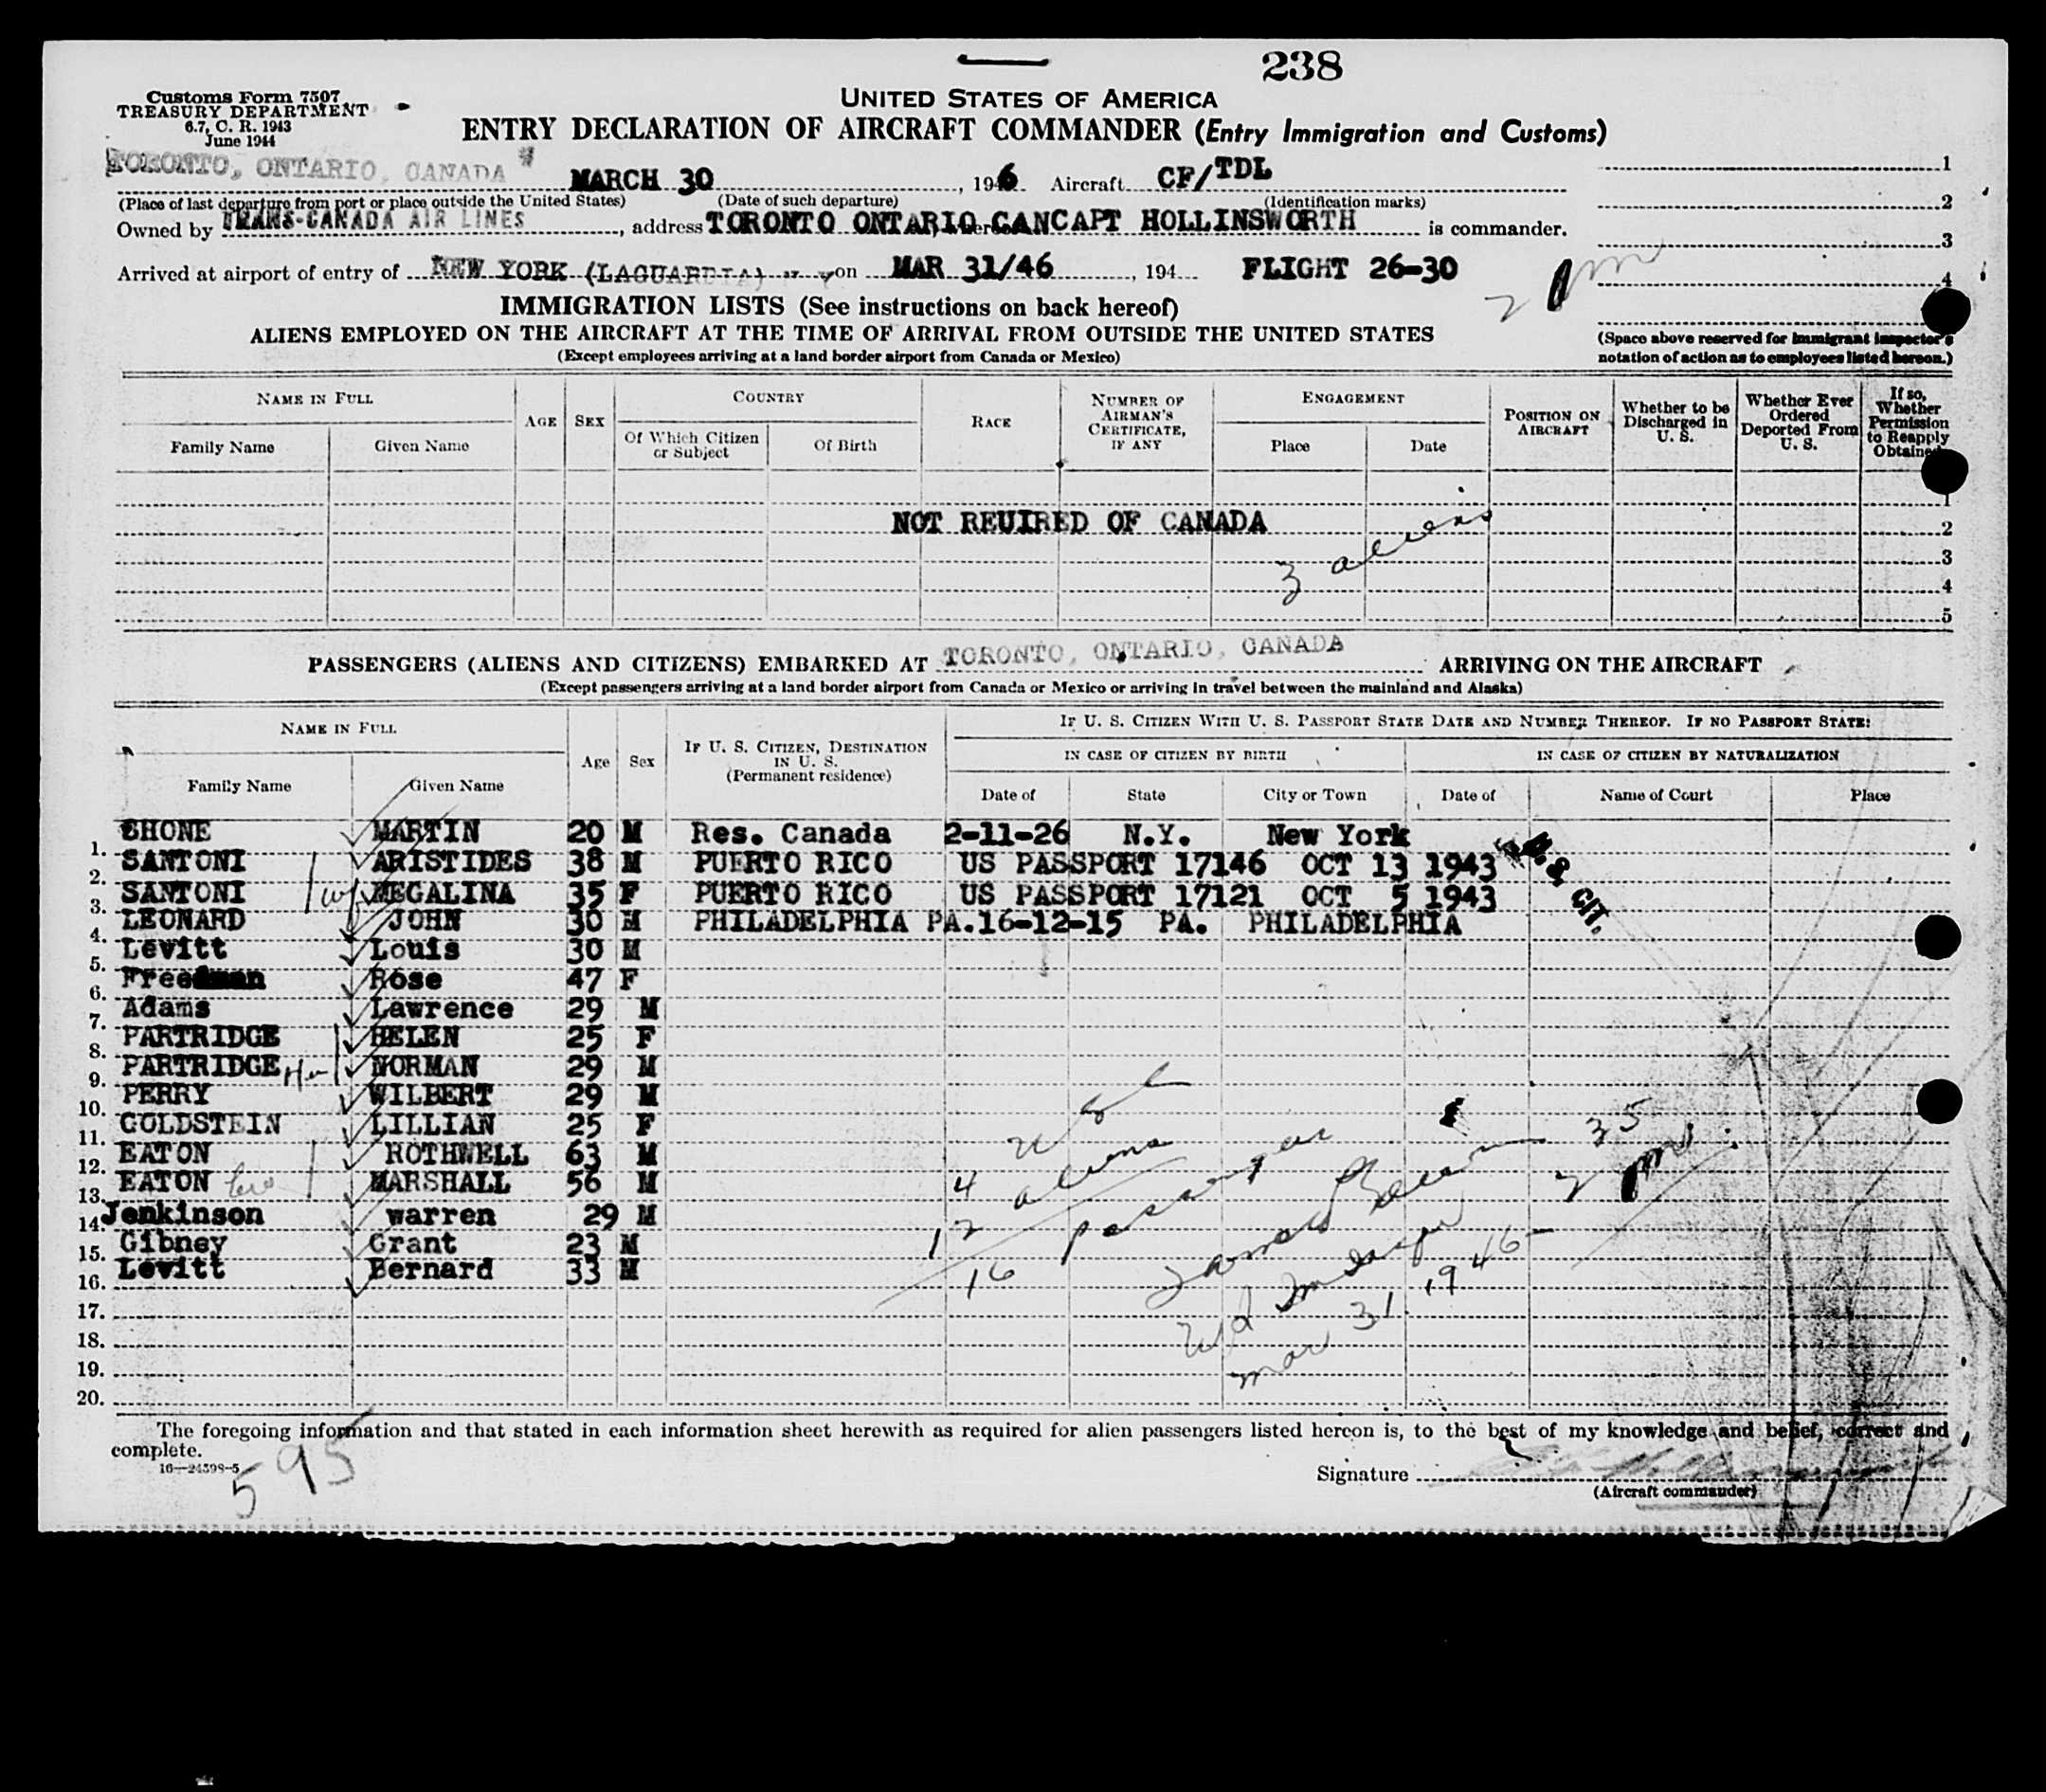 238
Customs Form 7507
TREASURY DEPARTMENT
6.7, C. R. 1943
June 1944
UNITED STATES OF AMERICA
ENTRY DECLARATION OF AIRCRAFT COMMANDER (Entry Immigration and Customs)
TORONTO, ONTARIO, CANADA MARCH 30, 1946 Aircraft CF/TDL
(Place of last departure from port or place outside the United States) (Date of such departure) (Identification marks)
Owned by TRANS-CANADA AIR LINES, address TORONTO ONTARIO CAN CAPT HOLLINSWORTH is commander.
Arrived at airport of entry of NEW YORK (LAGUARDIA) on MAR 31/46, 194 FLIGHT 26-30
1
2
3
4
2 pm
IMMIGRATION LISTS (See instructions on back hereof)
ALIENS EMPLOYED ON THE AIRCRAFT AT THE TIME OF ARRIVAL FROM OUTSIDE THE UNITED STATES
(Except employees arriving at a land border airport from Canada or Mexico)
(Space above reserved for immigrant inspector's
notation of action as to employees listed hereon.)
NAME IN FULL AGE SEX COUNTRY RACE NUMBER OF AIRMAN'S CERTIFICATE, IF ANY ENGAGEMENT POSITION ON AIRCRAFT Whether to be Discharged in U. S. Whether Ever Ordered Deported From U. S. If so, Whether Permission to Reapply Obtained
Family Name Given Name Of Which Citizen or Subject Of Birth Place Date
1
NOT REUIRED OF CANADA 2
3 aliens
3
4
5
PASSENGERS (ALIENS AND CITIZENS) EMBARKED AT TORONTO, ONTARIO, CANADA ARRIVING ON THE AIRCRAFT
(Except passengers arriving at a land border airport from Canada or Mexico or arriving in travel between the mainland and Alaska)
NAME IN FULL Age Sex IF U. S. CITIZEN, DESTINATION IN U. S. (Permanent residence) IF U. S. CITIZEN WITH U. S. PASSPORT STATE DATE AND NUMBER THEREOF. IF NO PASSPORT STATE:
IN CASE OF CITIZEN BY BIRTH IN CASE OF CITIZEN BY NATURALIZATION
Family Name Given Name Date of State City or Town Date of Name of Court Place
1. SHONE MARTIN 20 M Res. Canada 2-11-26 N.Y. New York
2. SANTONI ARISTIDES 38 M PUERTO RICO US PASSPORT 17146 OCT 13 1943
3. SANTONI wf MEGALINA 35 F PUERTO RICO US PASSPORT 17121 OCT 5 1943
U. S. CIT.
4. LEONARD JOHN 30 M PHILADELPHIA PA. 16-12-15 PA. PHILADELPHIA
5. Levitt Louis 30 M
6. Freedman Rose 47 F
7. Adams Lawrence 29 M
8. PARTRIDGE HELEN 25 F
9. PARTRIDGE NORMAN 29 M
10. PERRY WILBERT 29 M
11. GOLDSTEIN LILLIAN 25 F
12. EATON ROTHWELL 63 M
13. EATON MARSHALL 56 M
14. Jenkinson warren 29 M
15. Gibney Grant 23 M
16. Levitt Bernard 33 M
17.
18.
19.
20.
4
12 aliens
16 passenger
35
2 pm
Mar 31. 1946
The foregoing information and that stated in each information sheet herewith as required for alien passengers listed hereon is, to the best of my knowledge and belief, correct and
complete.
16—24598-5
595
Signature
(Aircraft commander)